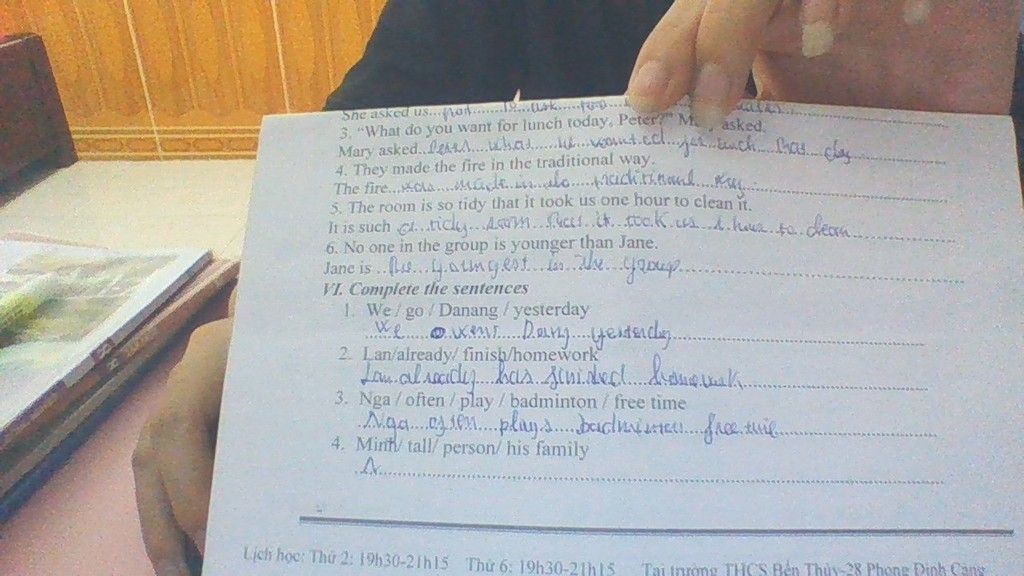 She asked us
3. "What do you want for lunch today, Peter?" Mary asked.
Mary asked Peter what he wanted for lunch that day
4. They made the fire in the traditional way.
The fire was made in the traditional way
5. The room is so tidy that it took us one hour to clean it.
It is such a tidy room that it took us 1 hour to clean
6. No one in the group is younger than Jane.
Jane is the youngest in the group
VI. Complete the sentences
1. We / go / Danang / yesterday
We went Dang yesterday
2. Lan/already/ finish/homework
Lan already has finished homework
3. Nga / often / play / badminton / free time
Nga often plays free time
4. Minh/ tall/ person/ his family
Lịch học: Thứ 2: 19h30-21h15 Thứ 6: 19h30-21h15 Tại trường THCS Bến Thủy-28 Phong Định Cảng